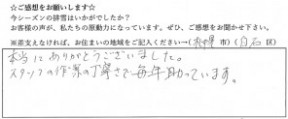 ☆ご感想をお願いします☆
今シーズンの排雪はいかがでしたか?
お客様の声が、私たちの原動力になっています。ぜひ、ご感想をお聞かせ下さい。
※差支えなければ、お住まいの地域をご記入ください→(札幌市)(白石区)
本当にありがとうございました。
スタッフの作業の丁寧さで毎年助っています。